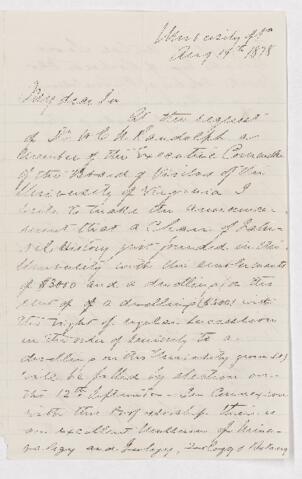 University of Va
Aug 19th 1878
My dear Sir
At the request
of Dr W. C. N. Randolph a
member of the Executive Committee
of the Board of Visitors of the
University of Virginia I
write to make the announce-
ment that a Chair of Natu-
ral History just founded in this
University with the emoluments
of $3000 and a dwelling or the
rent of a dwelling ($300) with
the right of regular succession
in the order of seniority to a
dwelling on the University grounds,
will be filled by election on
the 12th September. In connexion
with the Professorship there is
an excellent Museum of Mine-
ralogy and Geology, Zoology & Botany